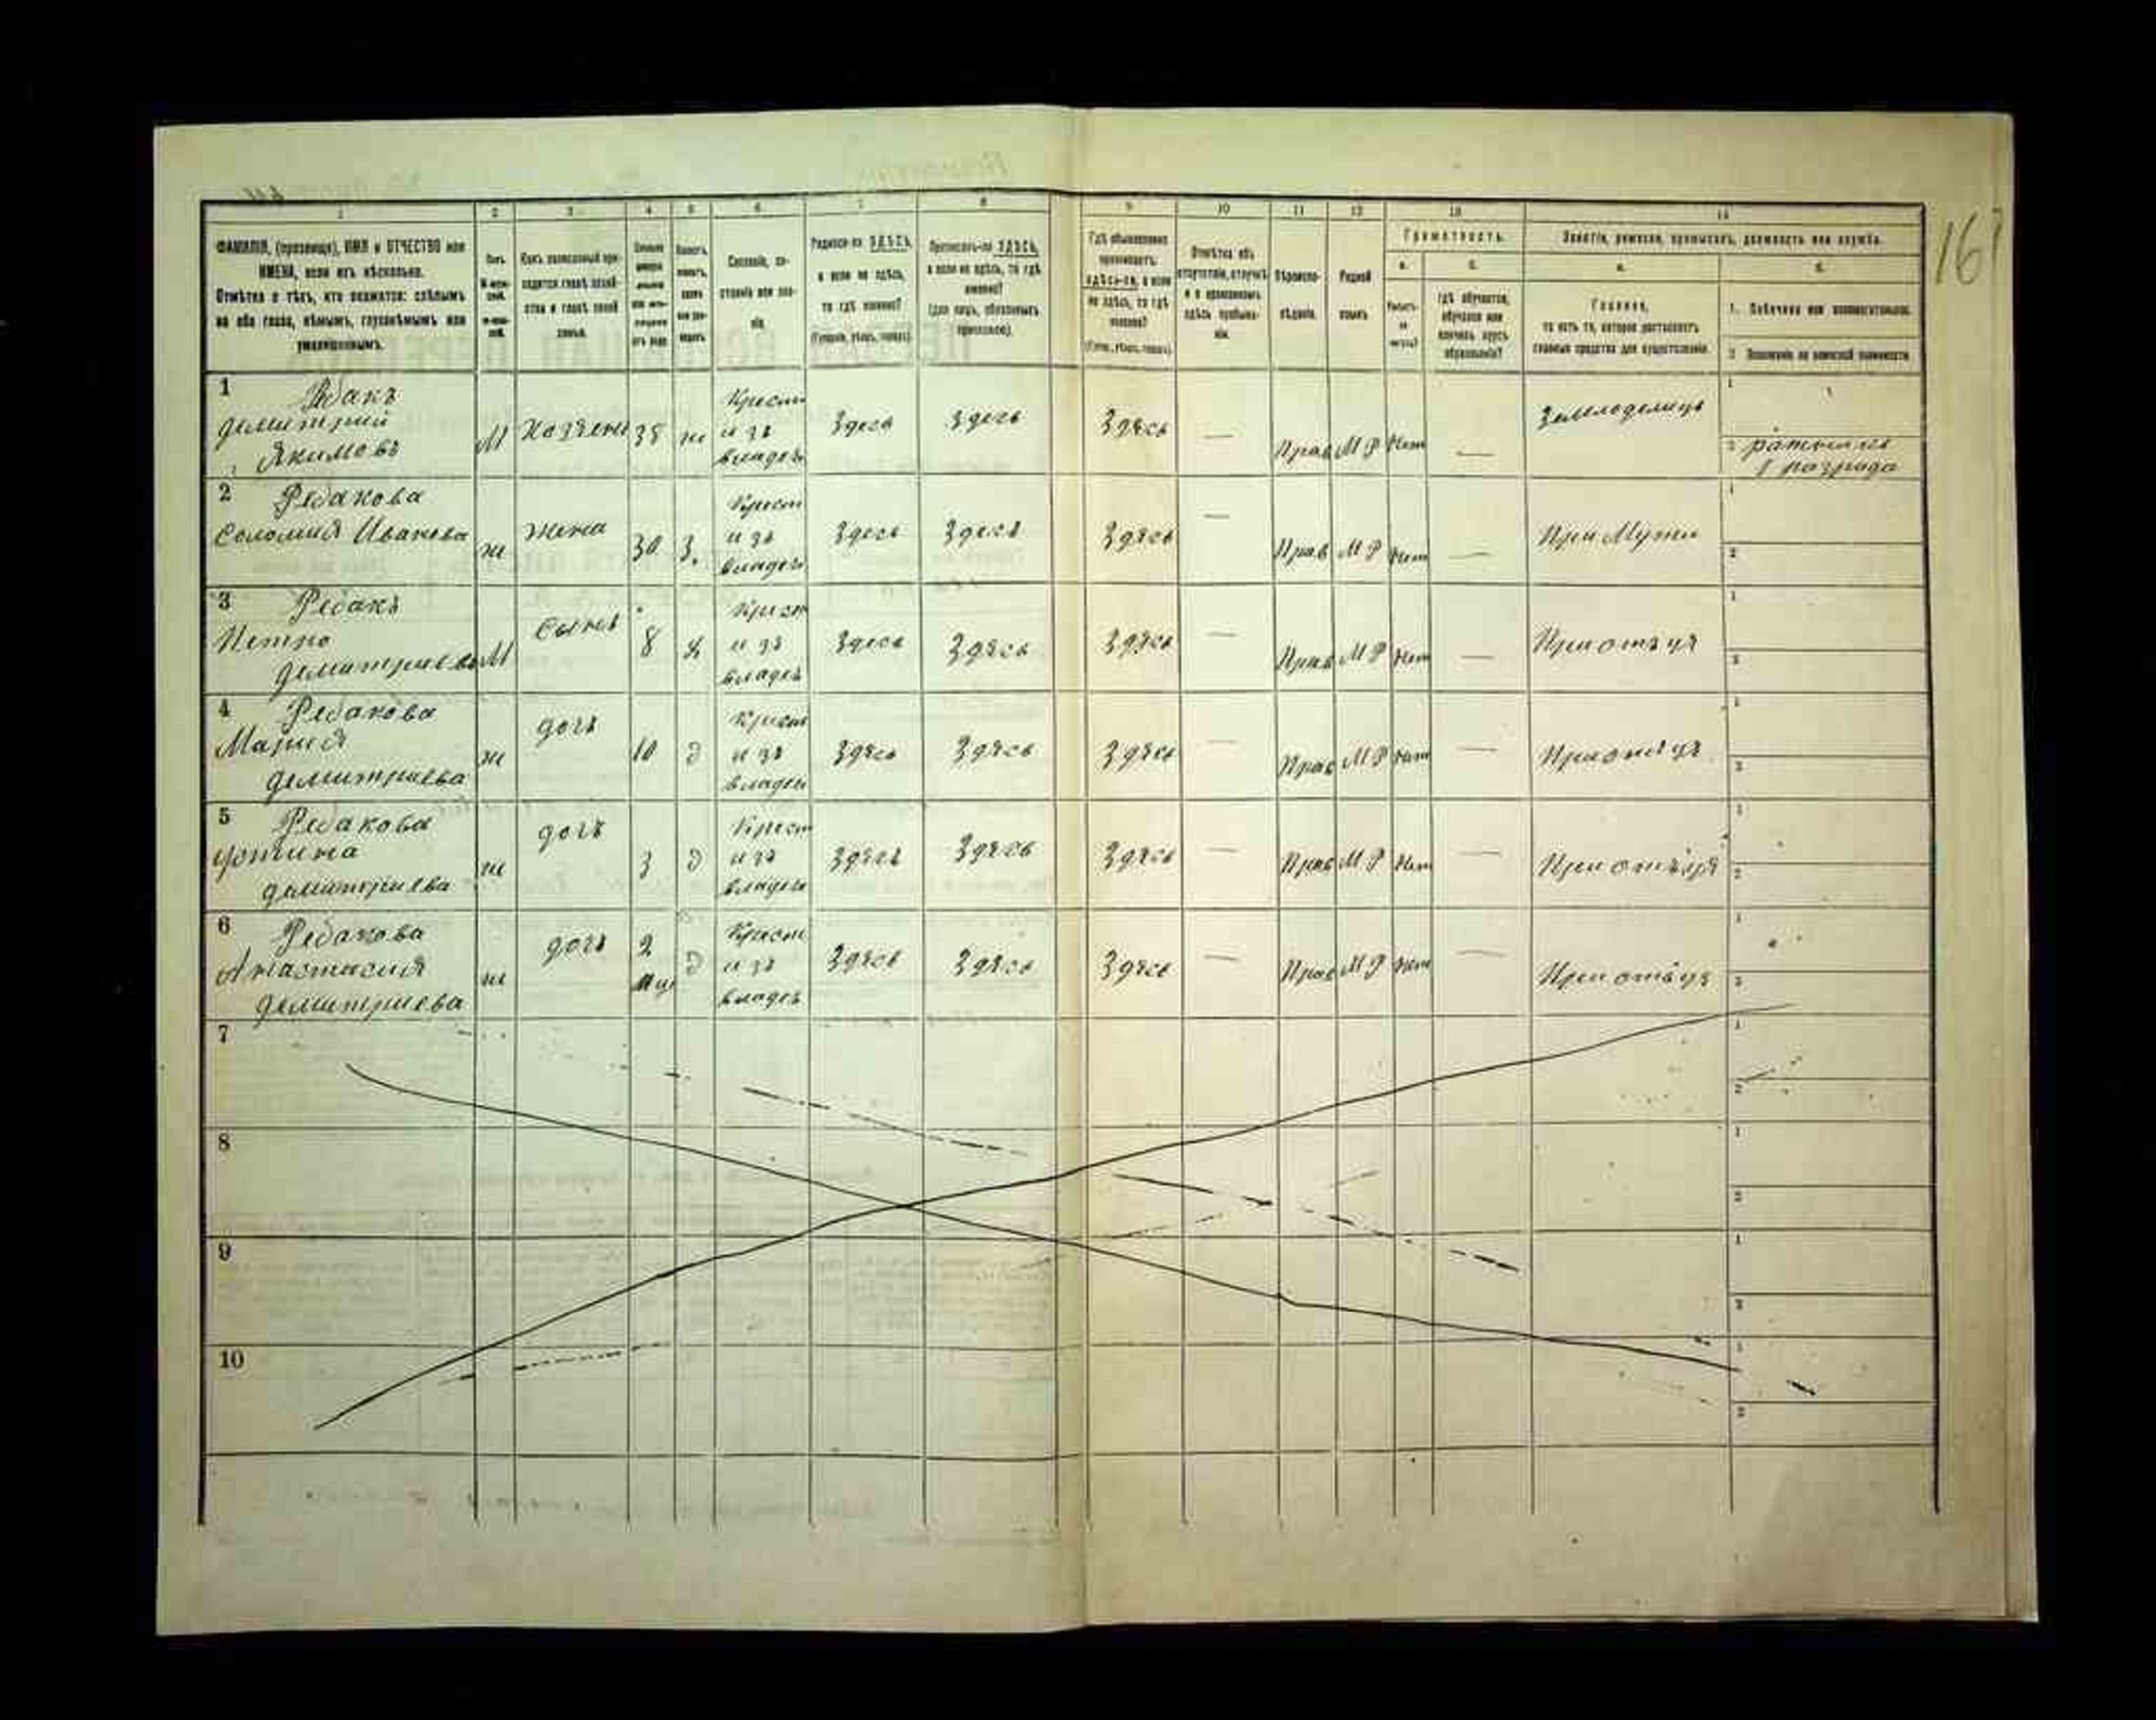 161
1 2 3 4 5 6 7 8 9 10 11 12 13 14
ФАМИЛІЯ, (прозвище), ИМЯ и ОТЧЕСТВО или
ИМЕНА, если ихъ нѣсколько.
Отмѣтка о тѣхъ, кто окажется: слѣпымъ
на оба глаза, нѣмымъ, глухонѣмымъ или
умалишеннымъ.
Полъ.
Какъ записанный при-
ходится главѣ хозяй-
ства и главѣ своей
семьи.
Сословіе, со-
стояніе или зва-
ніе
Родился-ли ЗДѢСЬ,
а если не здѣсь,
то гдѣ именно?
(Губернія, уѣздъ, городъ).
Приписанъ-ли ЗДѢСЬ,
а если не здѣсь, то гдѣ
именно?
(для лицъ, обязанныхъ
припискою).
Гдѣ обыкновенно
проживаетъ:
здѣсь-ли, а если
не здѣсь, то гдѣ
именно?
(Губер., уѣздъ, городъ).
Отмѣтка объ
отсутствіи, отлучкѣ
и о временномъ
здѣсь пребыва-
ніи.
Вѣроиспо-
вѣданіе.
Родной
языкъ
Грамотность.
а.
б.
Умѣетъ-
ли
читать?
Гдѣ обучается,
обучался или
кончилъ курсъ
образованія?
Занятіе, ремесло, промыселъ, должность или служба.
а.
б.
Главное,
то есть то, которое доставляетъ
главныя средства для существованія.
1. Побочное или вспомогательное.
2. Положеніе по воинской повинности
1
Рѣбакъ
демитрий
Якимовъ
М
Хозяенъ
38
же
Крест
изъ
владел
Здесь
Здесь
Здѣсь
—
Прав
М Р
Нет
—
Земледелецъ
1
2 ратникъ
1 разряда
2
Ребакова
Соломия Иванова
ж
жена
30
з.
Крест
изъ
владел
Здесь
Здесь
Здѣсь
—
Прав
М Р
Нет
—
При Мужи
1
2
3
Ребакъ
Петро
демитриевъ
М
сынъ
8
х
Крест
изъ
владел
Здесь
Здѣсь
Здѣсь
—
Прав
М Р
Нет
—
При отъця
1
2
4
Ребакова
Мария
демитриева
ж
дочь
10
д
Крест
изъ
владел
Здѣсь
Здѣсь
Здѣсь
—
Прав
М Р
Нет
—
При отъця
1
2
5
Ребакова
устина
демитриева
ж
дочь
3
д
Крест
изъ
владел
Здѣсь
Здѣсь
Здѣсь
—
Прав
М Р
Нет
—
При отъця
1
2
6
Ребакова
Анастасия
демитриева
ж
дочь
2
мц
д
Крест
изъ
владел
Здѣсь
Здѣсь
Здѣсь
—
Прав
М Р
Нет
—
При отъця
1
2
7
1
2
8
1
2
9
1
2
10
1
2